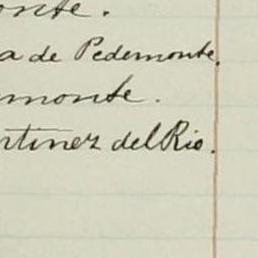 onte.
a de Pedemonte.
monte.
rtinez del Rio.